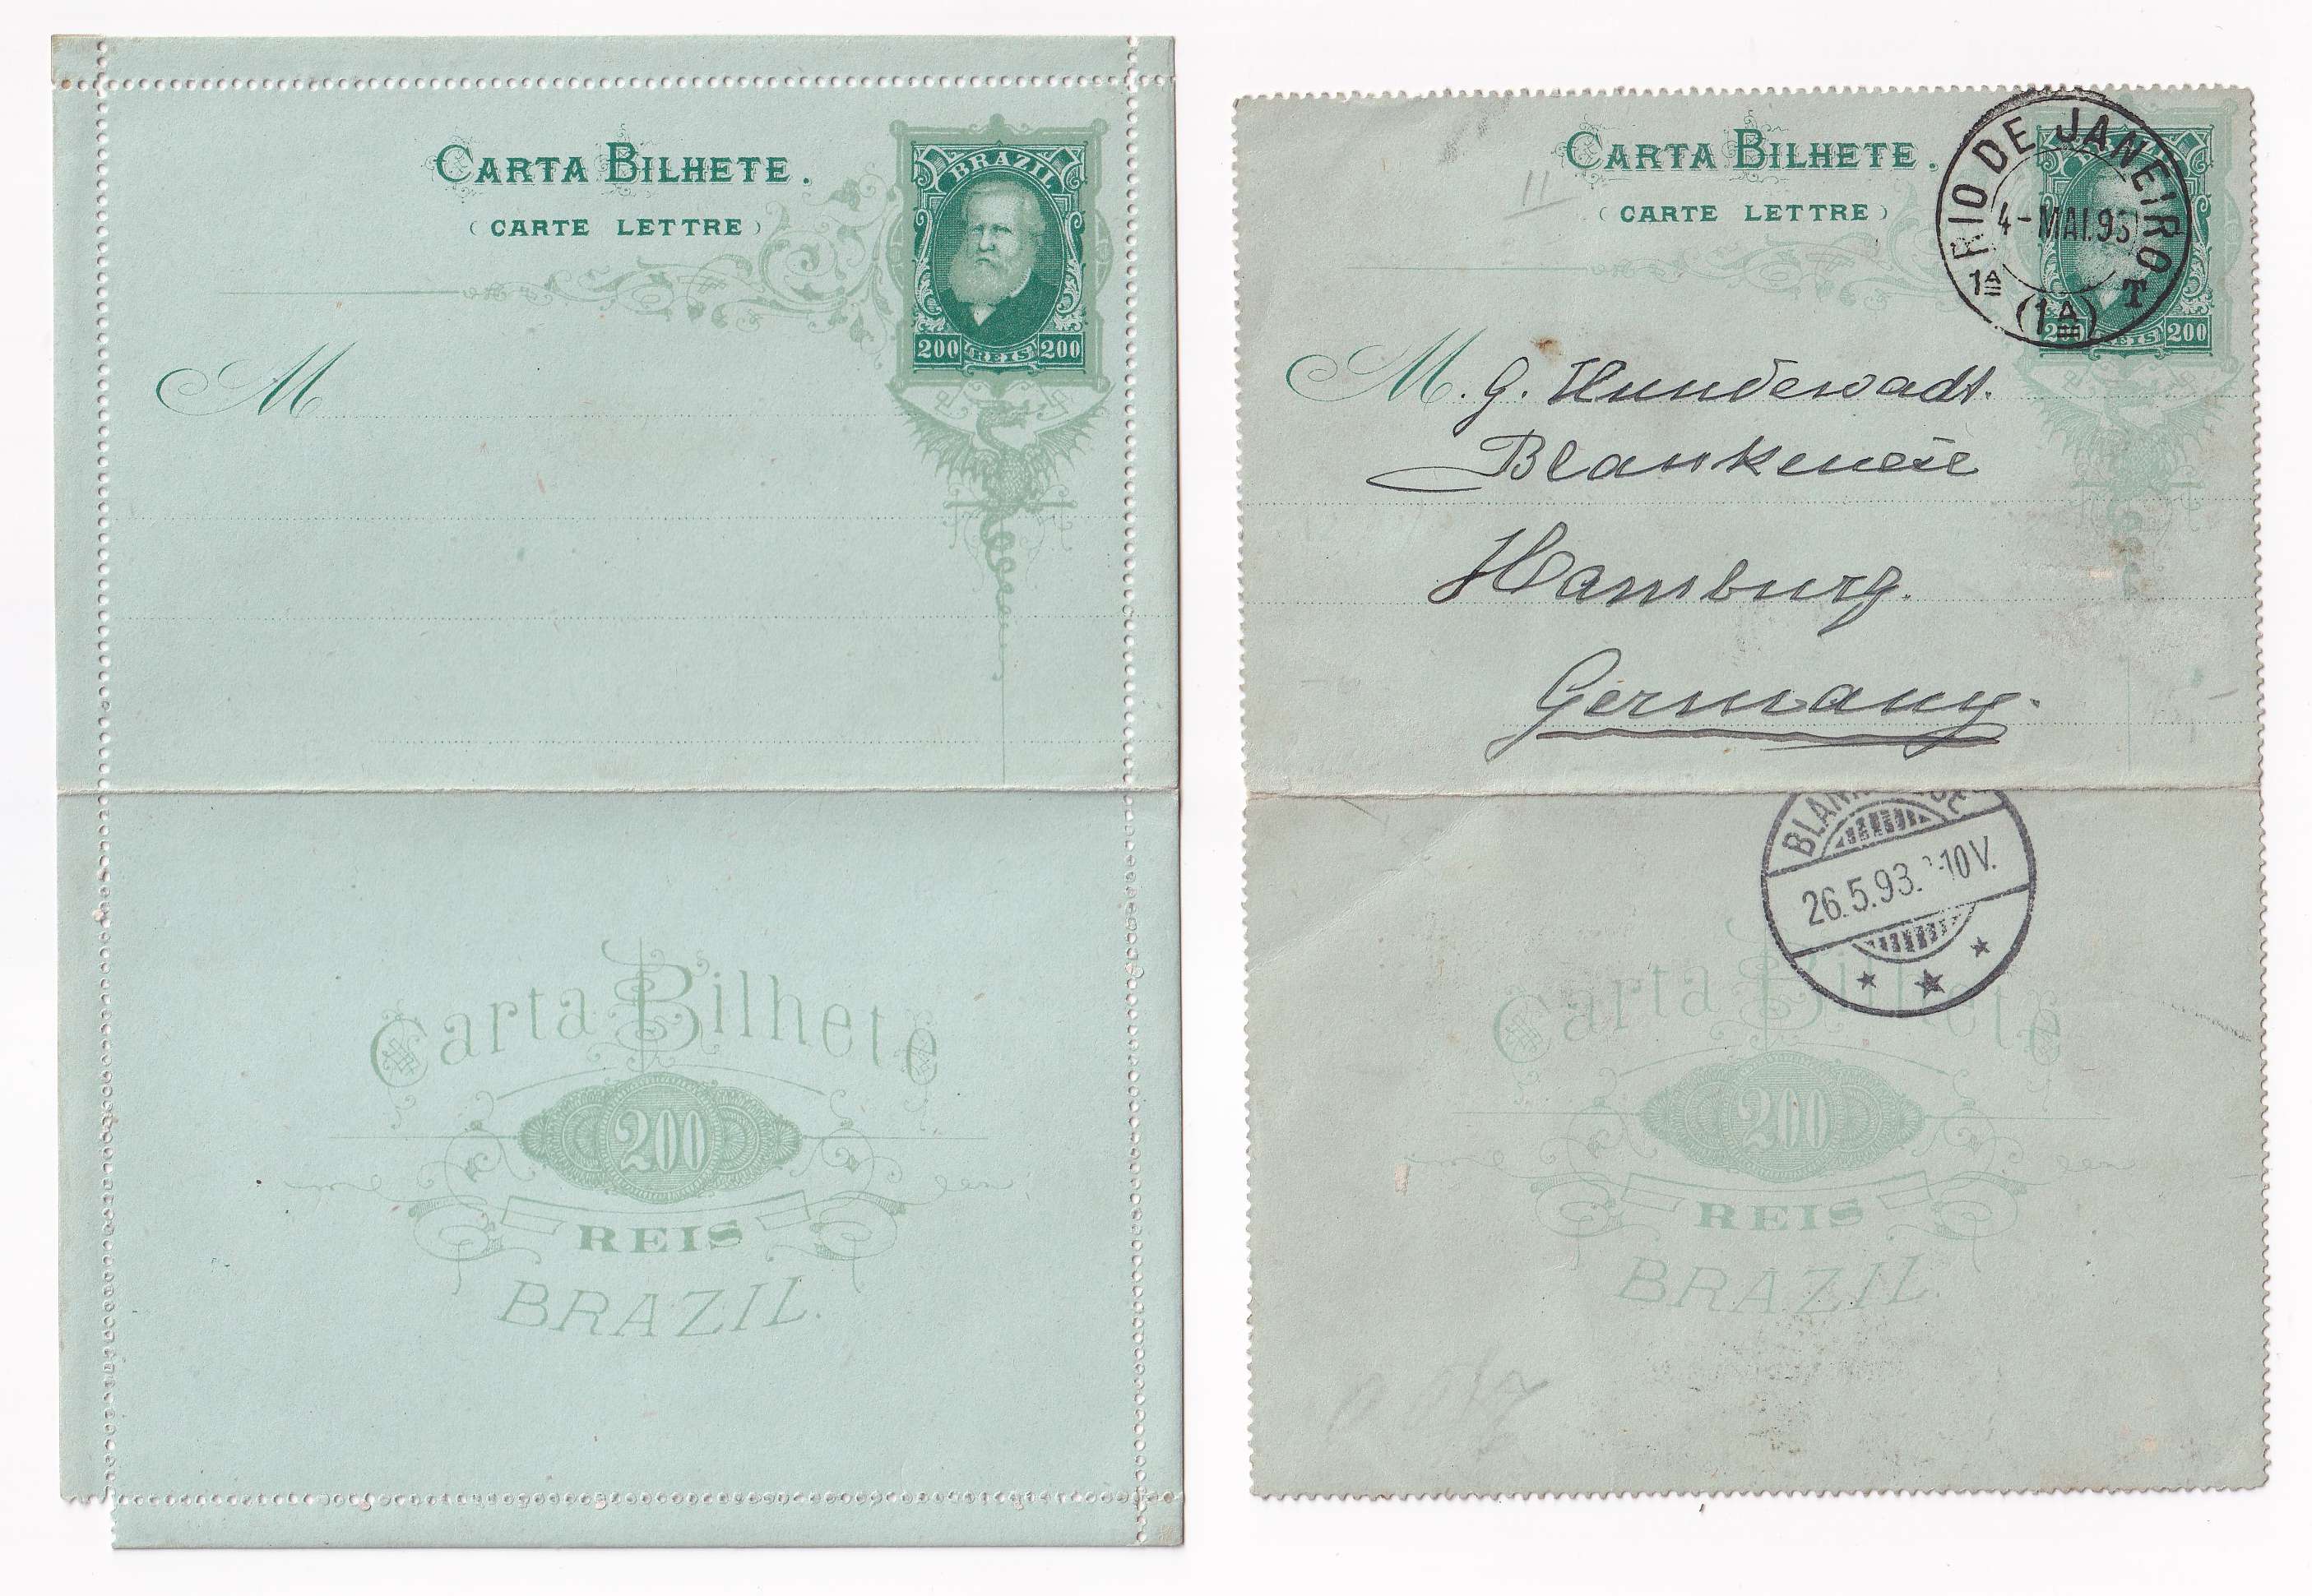 CARTA BILHETE.
(CARTE LETTRE)
BRAZIL
200 REIS 200
M
Carta Bilhete
200
REIS
BRAZIL.
CARTA BILHETE.
(CARTE LETTRE)
RIO DE JANEIRO T
4-MAI.93
1A
(1A)
200 REIS 200
M. G. Hundewadt.
Blankenese
Hamburg.
Germany.
26.5.93. 10V.
Carta Bilhete
200
REIS
BRAZIL.